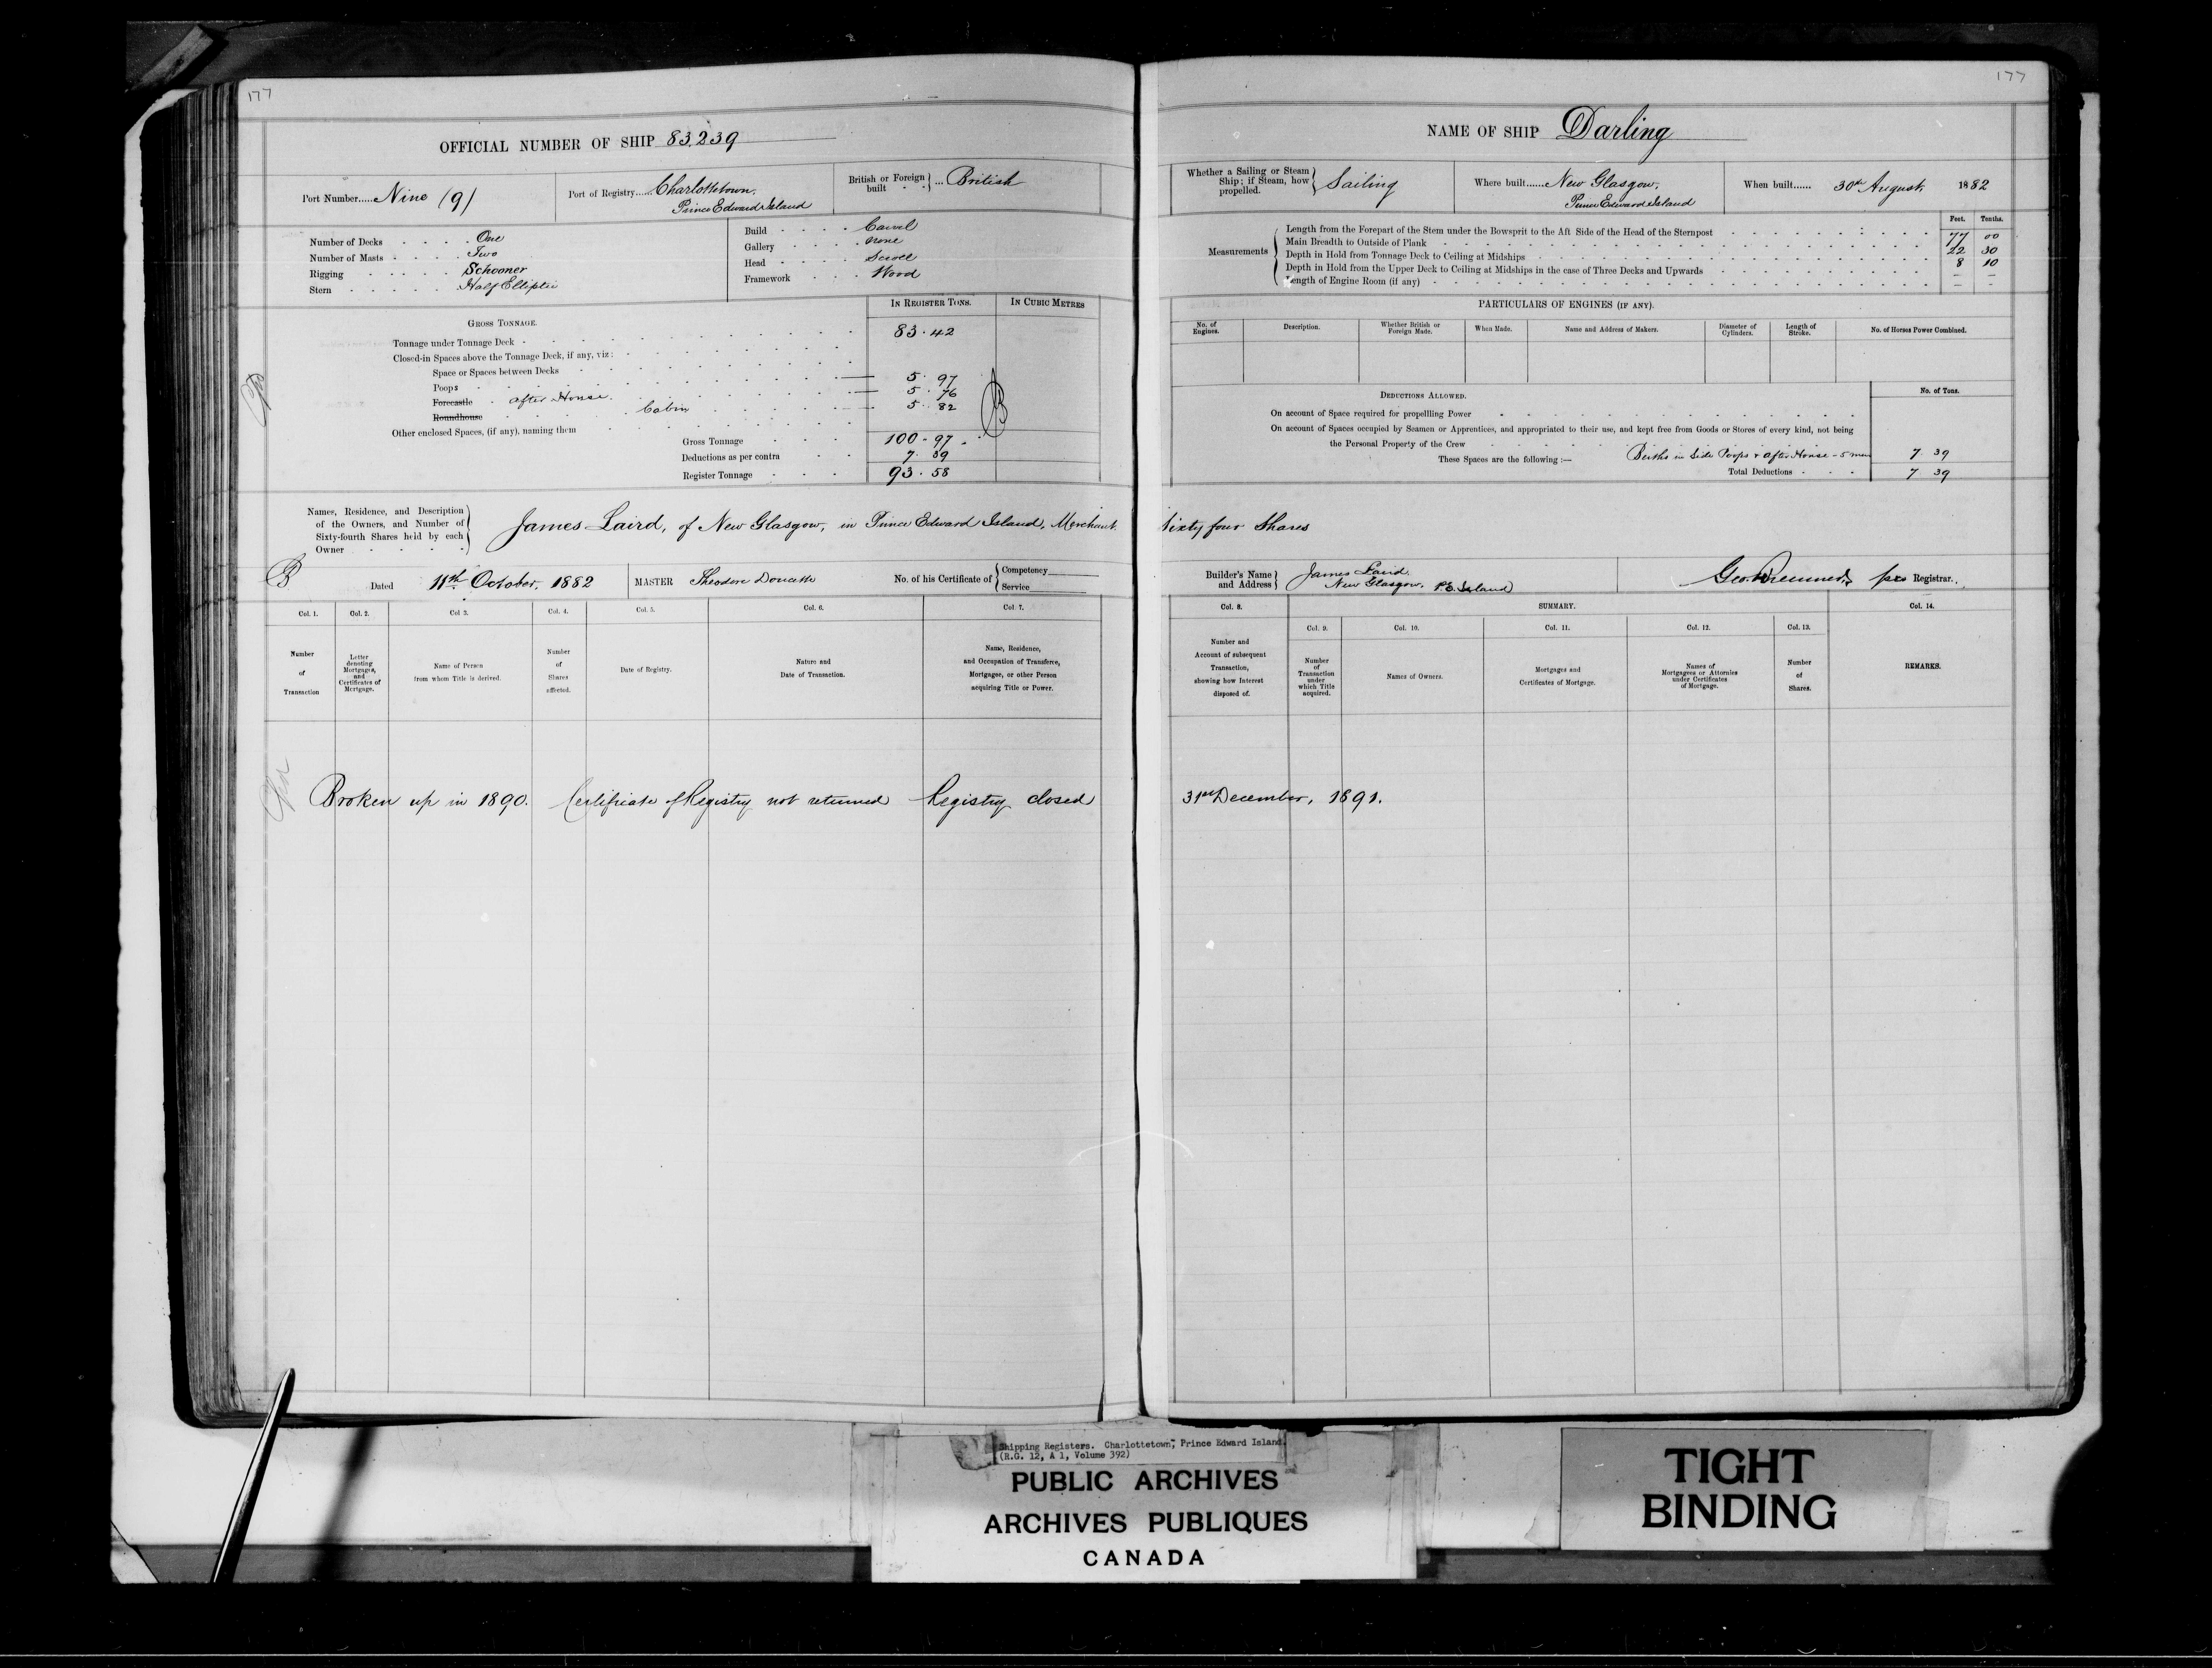 177
177
OFFICIAL NUMBER OF SHIP 83,239
Port Number.....Nine (9)
Port of Registry.....Charlottetown,
Prince Edward Island
British or Foreign built ... British
Number of Decks . . . . One
Number of Masts . . . . Two
Rigging . . . . Schooner
Stern . . . . Half Elliptic
Build . . . . Carvel
Gallery . . . . none
Head . . . . Scroll
Framework . . . . Wood
IN REGISTER TONS.
IN CUBIC METRES
GROSS TONNAGE.
Tonnage under Tonnage Deck 83.42
Closed-in Spaces above the Tonnage Deck, if any, viz:
Space or Spaces between Decks
Poops 5.97
Forecastle After House 5.76
Roundhouse Cabin 5.82
Other enclosed Spaces, (if any), naming them
Gross Tonnage 100.97
Deductions as per contra 7.39
Register Tonnage 93.58
NAME OF SHIP Darling
Whether a Sailing or Steam Ship; if Steam, how propelled. Sailing
Where built......New Glasgow,
Prince Edward Island
When built...... 30th August 1882
Feet. Tenths.
Measurements
Length from the Forepart of the Stem under the Bowsprit to the Aft Side of the Head of the Sternpost 77 00
Main Breadth to Outside of Plank 22 30
Depth in Hold from Tonnage Deck to Ceiling at Midships 8 10
Depth in Hold from the Upper Deck to Ceiling at Midships in the case of Three Decks and Upwards – –
Length of Engine Room (if any) – –
PARTICULARS OF ENGINES (IF ANY).
No. of Engines.
Description.
Whether British or Foreign Made.
When Made.
Name and Address of Makers.
Diameter of Cylinders.
Length of Stroke.
No. of Horses Power Combined.
DEDUCTIONS ALLOWED.
No. of Tons.
On account of Space required for propellling Power
On account of Spaces occupied by Seamen or Apprentices, and appropriated to their use, and kept free from Goods or Stores of every kind, not being
the Personal Property of the Crew
These Spaces are the following :— Berths in Side Poops & After House - 5 men 7 39
Total Deductions 7 39
Names, Residence, and Description
of the Owners, and Number of
Sixty-fourth Shares held by each
Owner
James Laird, of New Glasgow, in Prince Edward Island, Merchant. Sixty four Shares
Dated 11th October, 1882
MASTER Theodore Doucette
No. of his Certificate of
Competency
Service
Builder's Name and Address
James Laird
New Glasgow. P.E. Island
Registrar.
Col. 1.
Number of Transaction
Col. 2.
Letter denoting Mortgages, and Certificates of Mortgage.
Col 3.
Name of Person from whom Title is derived.
Col. 4.
Number of Shares affected.
Col. 5.
Date of Registry.
Col. 6.
Nature and Date of Transaction.
Col. 7.
Name, Residence, and Occupation of Transferee, Mortgagee, or other Person acquiring Title or Power.
Col. 8.
Number and Account of subsequent Transaction, showing how Interest disposed of.
SUMMARY.
Col. 9.
Number of Transaction under which Title acquired.
Col. 10.
Names of Owners.
Col. 11.
Mortgages and Certificates of Mortgage.
Col. 12.
Names of Mortgagees or Attornies under Certificates of Mortgage.
Col. 13.
Number of Shares.
Col. 14.
REMARKS.
Broken up in 1890. Certificate of Registry not returned Registry closed 31st December, 1891.
Shipping Registers. Charlottetown, Prince Edward Island.
(R.G. 12, A 1, Volume 392)
PUBLIC ARCHIVES
ARCHIVES PUBLIQUES
CANADA
TIGHT
BINDING